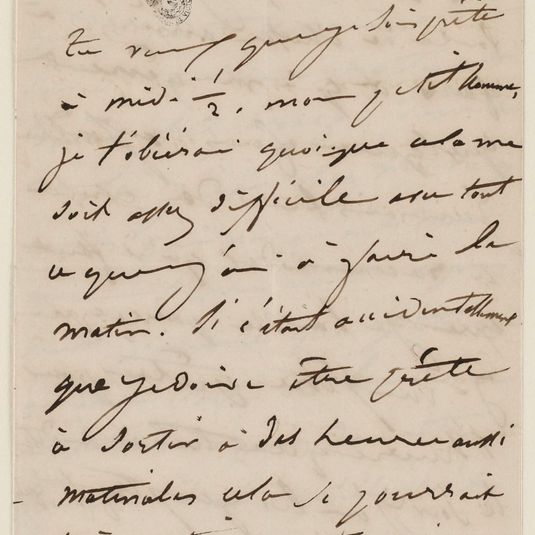 Tu veux que je sois prête
à midi ½, mon petit homme,
je t'obéirai quoique cela me
soit assez difficile avec tout
ce que j'ai à faire le
matin. Si c'était accidentellement
que je doive être prête
à sortir à des heures aussi
matinales cela se pourrait